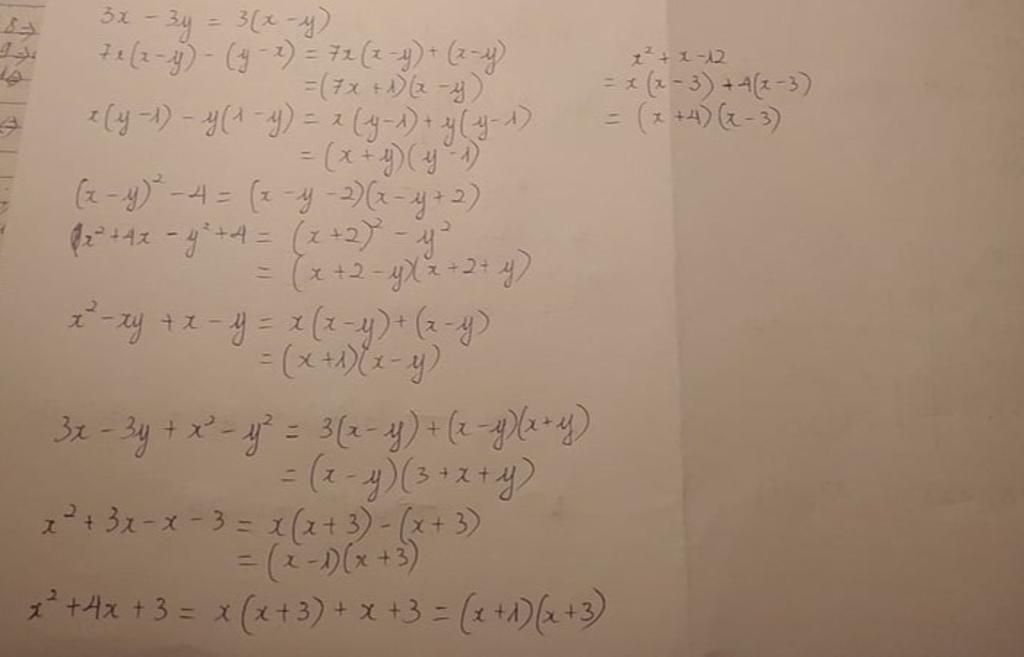 3x - 3y = 3(x - y)
7x(x - y) - (y - x) = 7x(x - y) + (x - y)
= (7x + 1)(x - y)
x(y - 1) - y(1 - y) = x(y - 1) + y(y - 1)
= (x + y)(y - 1)
(x - y)² - 4 = (x - y - 2)(x - y + 2)
x² + 4x - y² + 4 = (x + 2)² - y²
= (x + 2 - y)(x + 2 + y)
x² - xy + x - y = x(x - y) + (x - y)
= (x + 1)(x - y)
3x - 3y + x² - y² = 3(x - y) + (x - y)(x + y)
= (x - y)(3 + x + y)
x² + 3x - x - 3 = x(x + 3) - (x + 3)
= (x - 1)(x + 3)
x² + 4x + 3 = x(x + 3) + x + 3 = (x + 1)(x + 3)
x² + x - 12
= x(x - 3) + 4(x - 3)
= (x + 4)(x - 3)